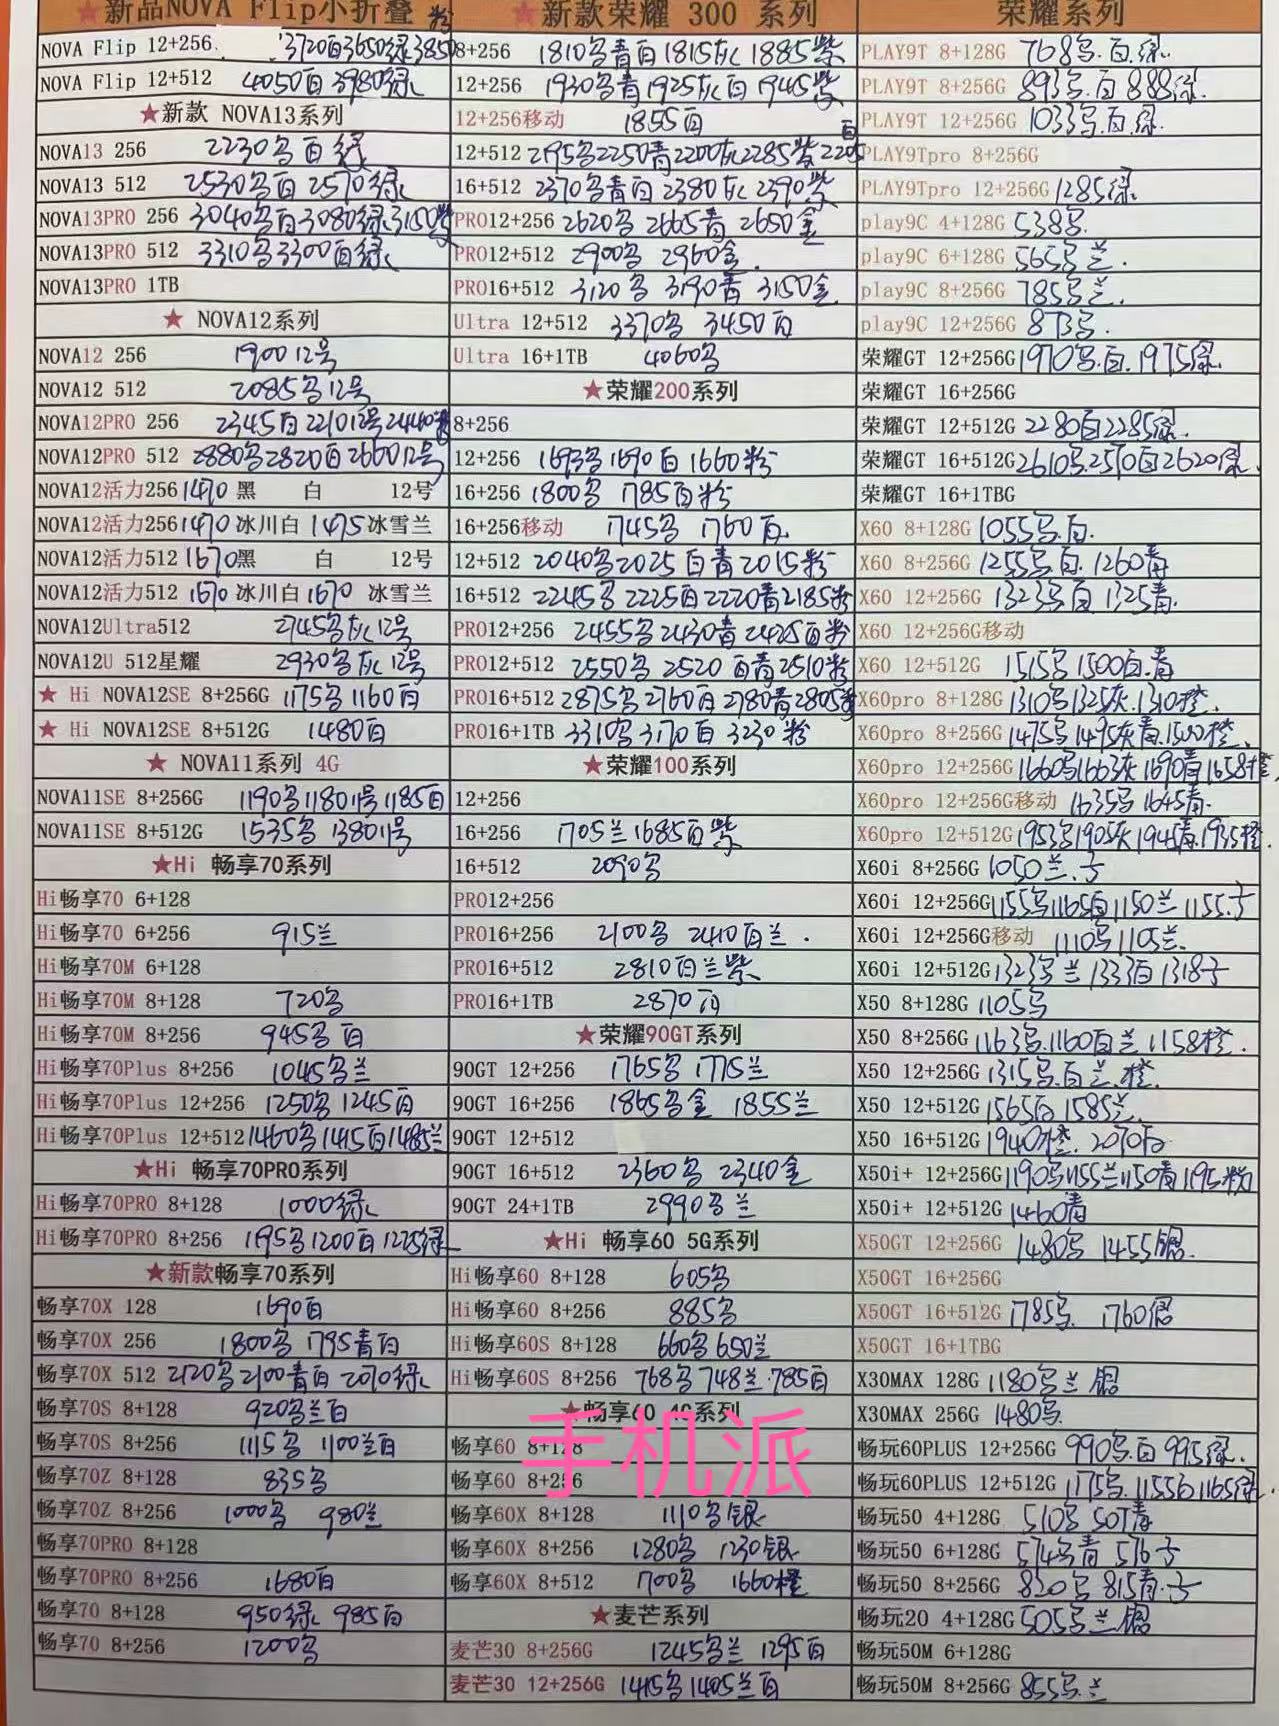 ★新品NOVA Flip小折叠 粉
NOVA Flip 12+256 3720百3650绿3850
NOVA Flip 12+512 4050百 3980绿
★新款 NOVA13系列
NOVA13 256 2230名百绿
NOVA13 512 2530名百 2570绿
NOVA13PRO 256 3040名百3080绿3150紫
NOVA13PRO 512 3310名3300百绿
NOVA13PRO 1TB
★ NOVA12系列
NOVA12 256 1900 12号
NOVA12 512 2085名12号
NOVA12PRO 256 2345百221012号2440青
NOVA12PRO 512 2880名2820百266012号
NOVA12活力256 1470 黑 白 12号
NOVA12活力256 1470 冰川白 1475 冰雪兰
NOVA12活力512 1670 黑 白 12号
NOVA12活力512 1670 冰川白 1670 冰雪兰
NOVA12Ultra512 2745名灰12号
NOVA12U 512星耀 2930名灰12号
★ Hi NOVA12SE 8+256G 1175名1160百
★ Hi NOVA12SE 8+512G 1480百
★ NOVA11系列 4G
NOVA11SE 8+256G 1190名118011号1185百
NOVA11SE 8+512G 1535名 138011号
★Hi 畅享70系列
Hi畅享70 6+128
Hi畅享70 6+256 915兰
Hi畅享70M 6+128
Hi畅享70M 8+128 720名
Hi畅享70M 8+256 945名百
Hi畅享70Plus 8+256 1045名兰
Hi畅享70Plus 12+256 1250名 1245百
Hi畅享70Plus 12+512 1460名1415百1485兰
★Hi 畅享70PRO系列
Hi畅享70PRO 8+128 1000绿
Hi畅享70PRO 8+256 1195名1200百1225绿
★新款畅享70系列
畅享70X 128 1690百
畅享70X 256 1800名 1795青百
畅享70X 512 2120名2100青百 2070绿
畅享70S 8+128 920名兰百
畅享70S 8+256 1115名 1100兰百
畅享70Z 8+128 835名
畅享70Z 8+256 1000名 980兰
畅享70PRO 8+128
畅享70PRO 8+256 1680百
畅享70 8+128 950绿 985百
畅享70 8+256 1200名
★新款荣耀 300 系列
8+256 1810名青百1815灰1885紫
12+256 1930名青1925灰百1945紫
12+256移动 1855百
12+512 2195名2250青2200灰2285紫2205百
16+512 2370名青百2380灰2390紫
PRO12+256 2620名 2665青 2650金
PRO12+512 2900名 2960金
PRO16+512 3120名 3190青 3150金
Ultra 12+512 3370名 3450百
Ultra 16+1TB 4060名
★荣耀200系列
8+256
12+256 1693名1690百1660粉
16+256 1800名 1785百粉
16+256移动 1745名 1760百
12+512 2040名2025百青2015粉
16+512 2245名2225百2220青2185粉
PRO12+256 2455名2430青2425百粉
PRO12+512 2550名2520百青2510粉
PRO16+512 2875名2760百2780青2805粉
PRO16+1TB 3310名3170百3230粉
★荣耀100系列
12+256
16+256 1705兰1685百紫
16+512 2090名
PRO12+256
PRO16+256 2100名 2410百兰
PRO16+512 2810百兰紫
PRO16+1TB 2870百
★荣耀90GT系列
90GT 12+256 1765名 1775兰
90GT 16+256 1865名金 1855兰
90GT 12+512
90GT 16+512 2360名 2340金
90GT 24+1TB 2990名兰
★Hi 畅享60 5G系列
Hi畅享60 8+128 605名
Hi畅享60 8+256 885名
Hi畅享60S 8+128 660名650兰
Hi畅享60S 8+256 768名748兰785百
★畅享60 4G系列
畅享60 8+128
畅享60 8+256
畅享60X 8+128 1110名银
畅享60X 8+256 1280名 1230银
畅享60X 8+512 1700名 1660橙
★麦芒系列
麦芒30 8+256G 1245名兰 1295百
麦芒30 12+256G 1415名1405兰百
荣耀系列
PLAY9T 8+128G 768名.百.绿.
PLAY9T 8+256G 893名.百888绿.
PLAY9T 12+256G 1033名.百.绿.
PLAY9Tpro 8+256G
PLAY9Tpro 12+256G 1285绿
play9C 4+128G 538名.
play9C 6+128G 565名兰.
play9C 8+256G 785名兰.
play9C 12+256G 873名.
荣耀GT 12+256G 1970名.百.1975绿.
荣耀GT 16+256G
荣耀GT 12+512G 2280百2285绿.
荣耀GT 16+512G 2610名.2570百2620绿.
荣耀GT 16+1TBG
X60 8+128G 1055名.百.
X60 8+256G 1255名.百.1260青
X60 12+256G 1323名百1325青.
X60 12+256G移动
X60 12+512G 1515名1500百.青
X60pro 8+128G 1310名1325灰.1310橙.
X60pro 8+256G 1475名1495灰青.1500橙.
X60pro 12+256G 1660名1663灰1690青1658橙.
X60pro 12+256G移动 1635名1645青.
X60pro 12+512G 1953名1905灰1945青.1935橙.
X60i 8+256G 1050兰.子
X60i 12+256G 1155名1165百1150兰1155.子
X60i 12+256G移动 1110名1105兰.
X60i 12+512G 1323名兰1333百1318子
X50 8+128G 1105名
X50 8+256G 1163名.1160百兰1158橙.
X50 12+256G 1315名.百兰.橙.
X50 12+512G 1565百1585兰.
X50 16+512G 1940橙.2070百
X50i+ 12+256G 1190名1155兰1150青1195粉
X50i+ 12+512G 1460青
X50GT 12+256G 1480名 1455银.
X50GT 16+256G
X50GT 16+512G 1785名. 1760银
X50GT 16+1TBG
X30MAX 128G 1180名兰银
X30MAX 256G 1480名.
畅玩60PLUS 12+256G 990名.百995绿.
畅玩60PLUS 12+512G 1175名.1155百1165绿.
畅玩50 4+128G 510名 507青
畅玩50 6+128G 574名青 576子
畅玩50 8+256G 820名 815青.子
畅玩20 4+128G 505名兰银
畅玩50M 6+128G
畅玩50M 8+256G 855名.兰
手机派